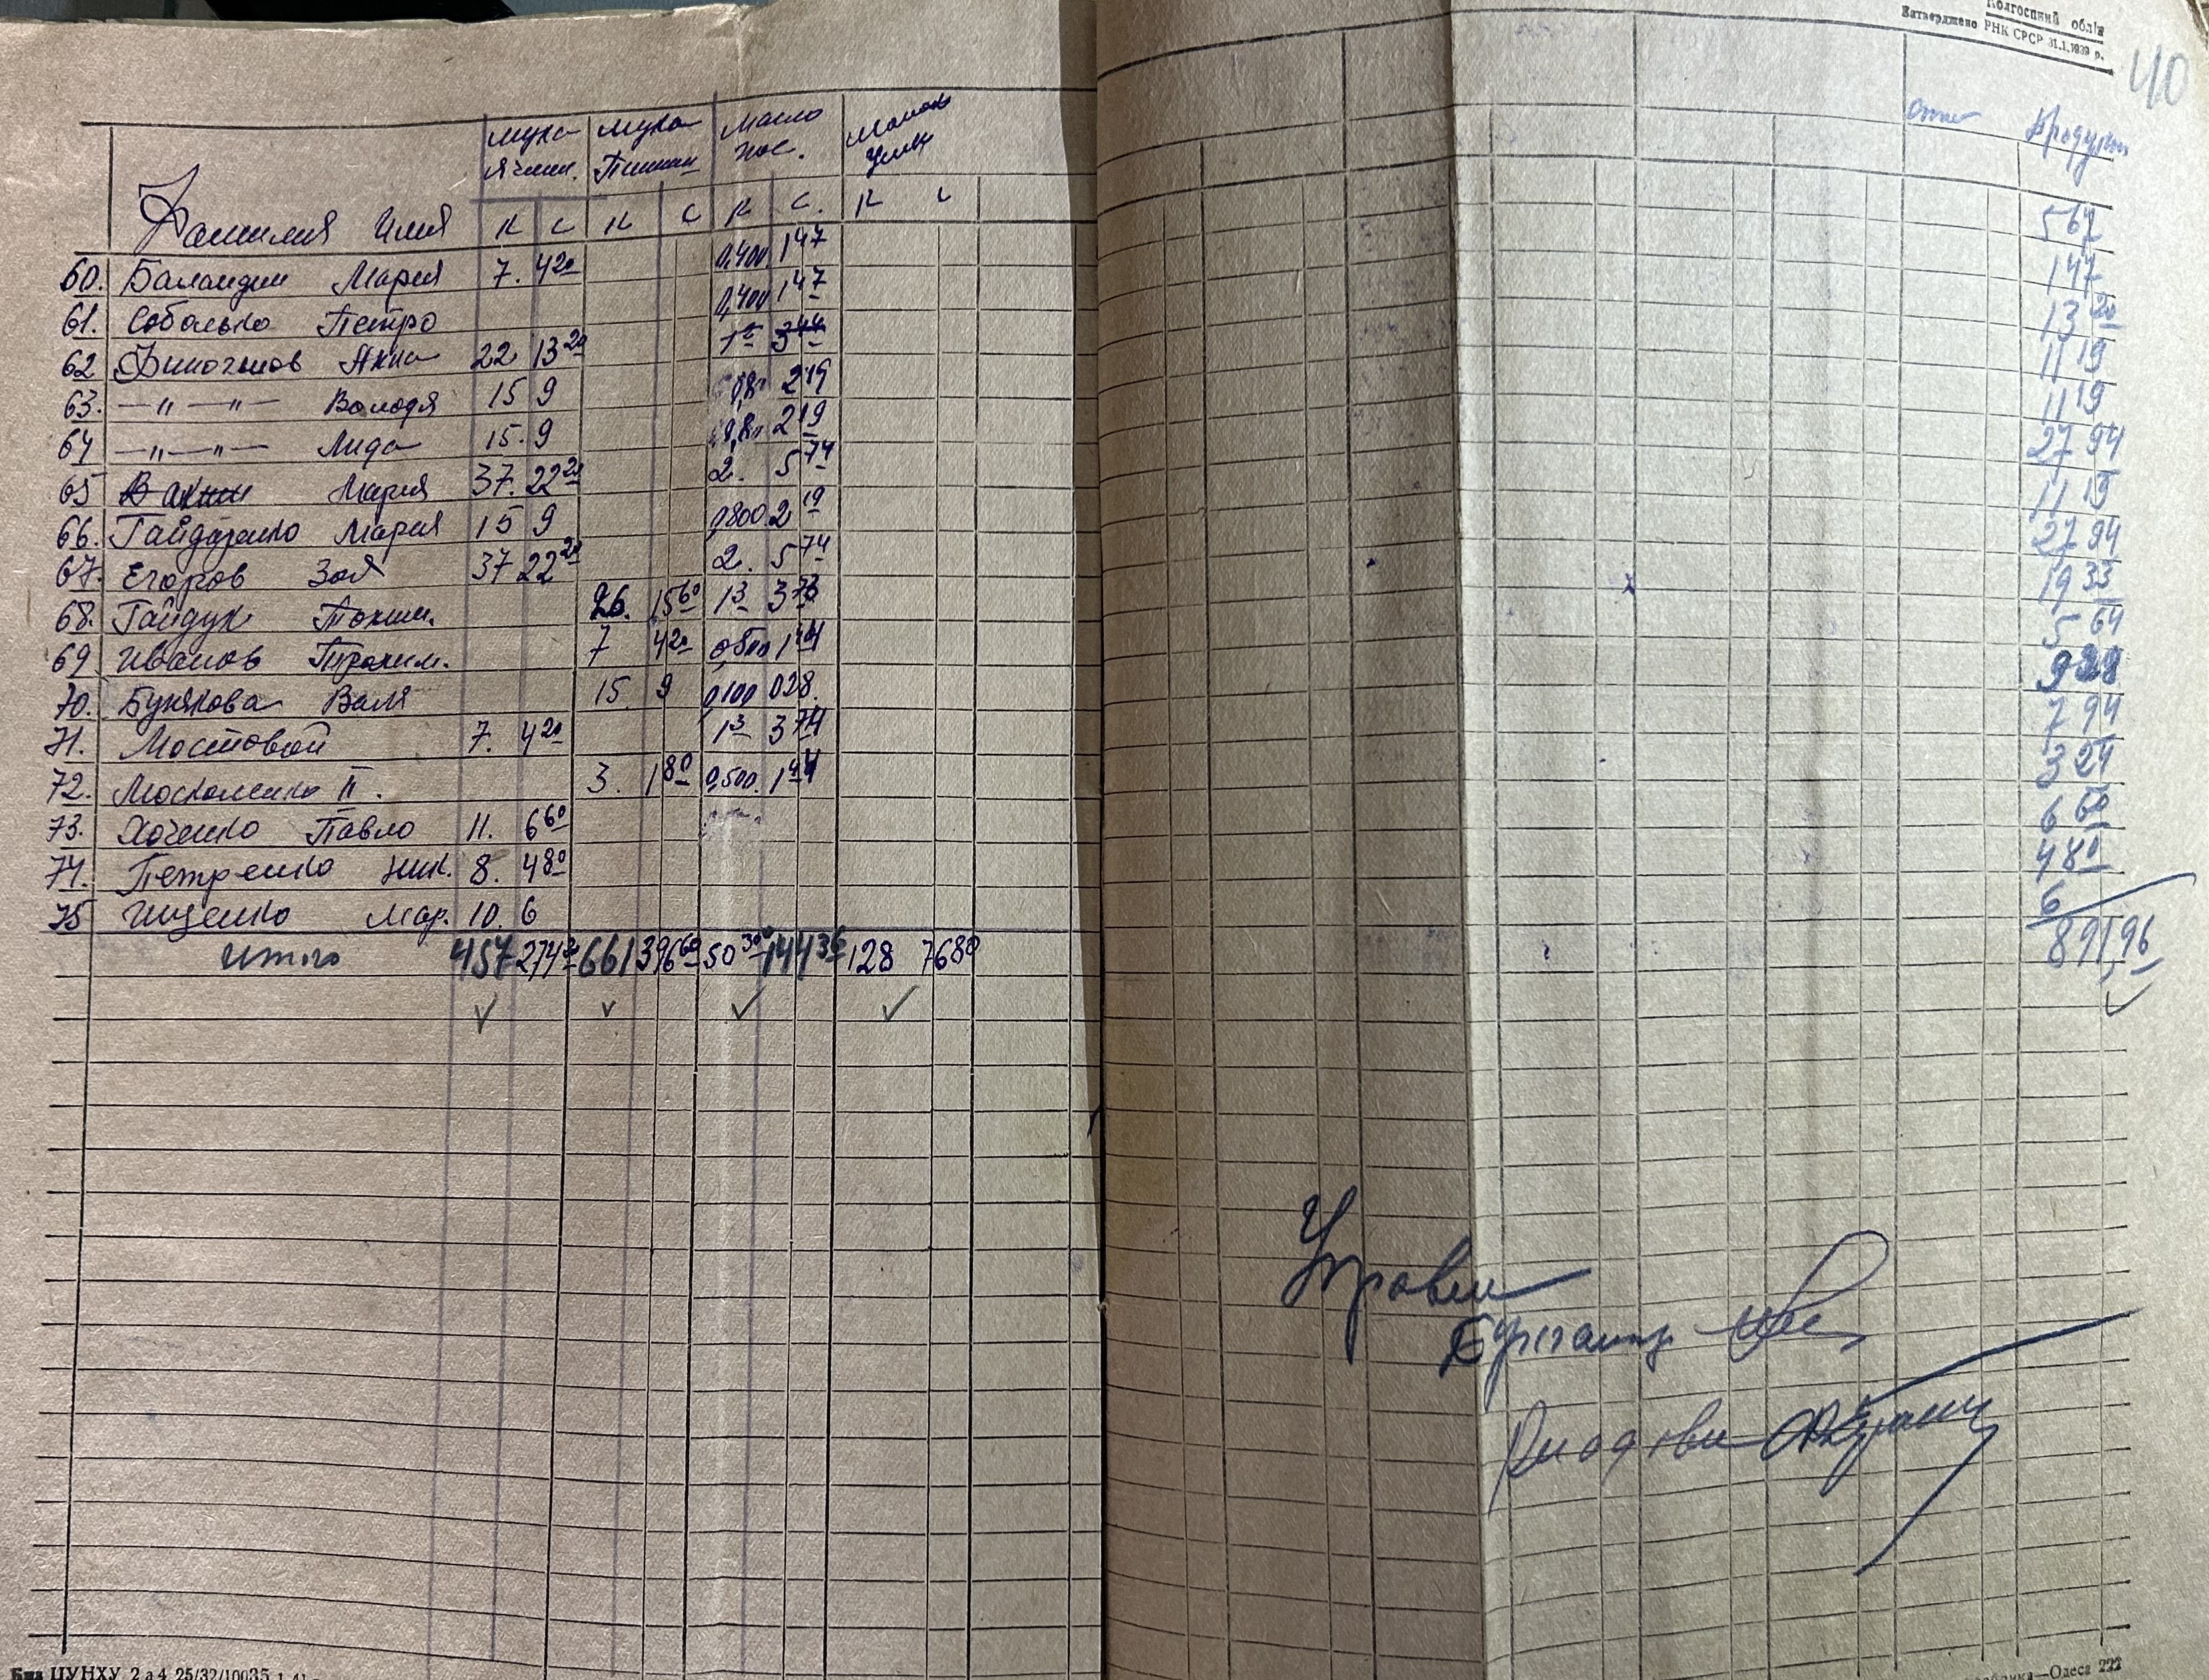 Колгоспний облік
Затверджено РНК СРСР 31.1.1939 р.
40
Фамилия Имя Мука Ячмен. Мука Масло пос. Продукти
К С К С К С. К С
60. Баландин Мария 7. 4 20 0,400 1 47 5 67
61. Соболько Петро 0,400 1 47 1 47
62 Финогенов Анна 22 13 20 13 20
63. —"—"— Володя 15 9 2 19 11 19
64 —"—"— Лида 15. 9 2 19 11 19
65 Мария 37. 22 20 2. 5 74 27 94
66. Гайдаренко Мария 15 9 0800 2 19 11 19
67. Егоров Зоя 37 22 20 2. 5 74 27 94
68. Гайдук 26. 15 60 1 3 3 73 19 33
69 Иванов Трохим. 7 4 20 0,500 1 44 5 64
70. Бунякова Валя 15. 9 0,100 0 28. 9 28
71. Мостовой 7. 4 20 1 3 3 74 7 94
72. Москаленко П. 3. 1 80 0,500. 1 44 3 24
73. Хоченко Павло 11. 6 60 6 60
74. Петренко Ник. 8. 4 80 4 80
75 Ищенко Мар. 10. 6 6
Итого 457 274 20 661 396 60 50 30 144 36 128 76 80 891,96
Управл
Бухгалтер
Кладовщ
Бид ЦУНХУ 2 а 4 25/32/10035
Одеса 222